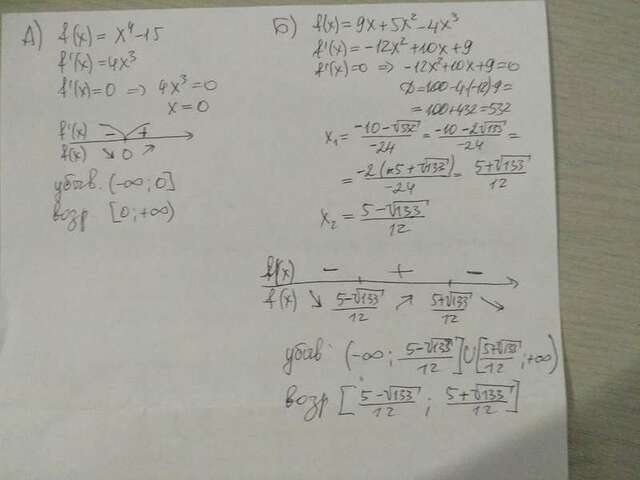 А) f(x) = x⁴-15
f'(x) = 4x³
f'(x)=0 => 4x³=0
x=0
f'(x) - +
f(x) ↘ 0 ↗
убыв. (-∞; 0]
возр. [0; +∞)
Б) f(x) = 9x + 5x² - 4x³
f'(x) = -12x² + 10x + 9
f'(x)=0 => -12x²+10x+9=0
D=100-4·(-12)·9=
=100+432=532
x₁ = (-10-√532)/-24 = (-10-2√133)/-24 =
= -2(5+√133)/-24 = (5+√133)/12
x₂ = (5-√133)/12
f'(x) - + -
f(x) ↘ (5-√133)/12 ↗ (5+√133)/12 ↘
убыв: (-∞; (5-√133)/12] ∪ [(5+√133)/12; +∞)
возр [(5-√133)/12; (5+√133)/12]